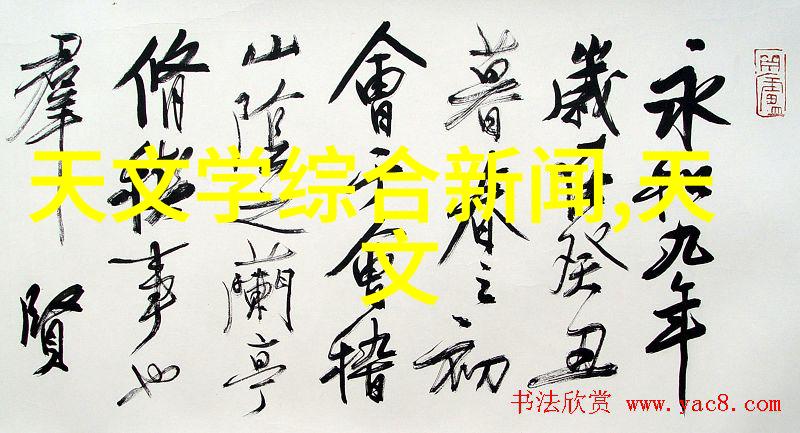 天文学综合新闻,天
文
永和九年
歲在癸丑
暮春之初
會于會稽
山陰之蘭亭
脩稧事也
羣賢
书法欣赏 www.yac8.com